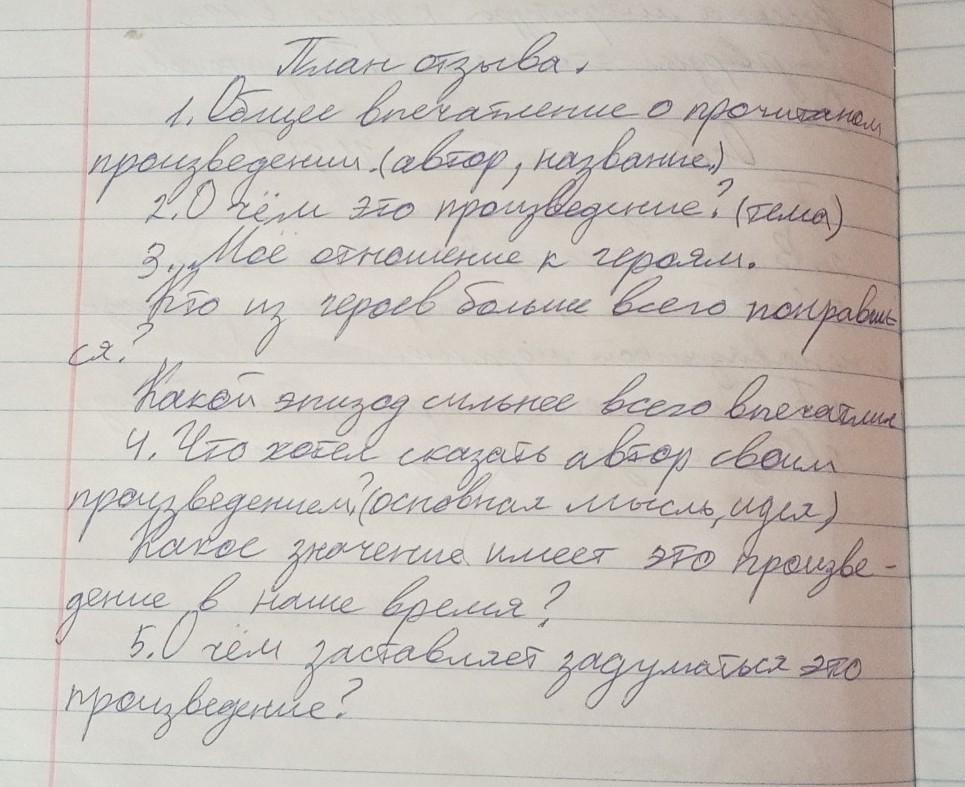 План отзыва.
1. Общее впечатление о прочитаном
произведении. (автор, название.)
2. О чём это произведение? (тема)
3. Моё отношение к героям.
Кто из героев больше всего понравил-
ся?
Какой эпизод сильнее всего впечатлил
4. Что хотел сказать автор своим
произведением? (основная мысль, идея)
Какое значение имеет это произве-
дение в наше время?
5. О чём заставляет задуматься это
произведение?